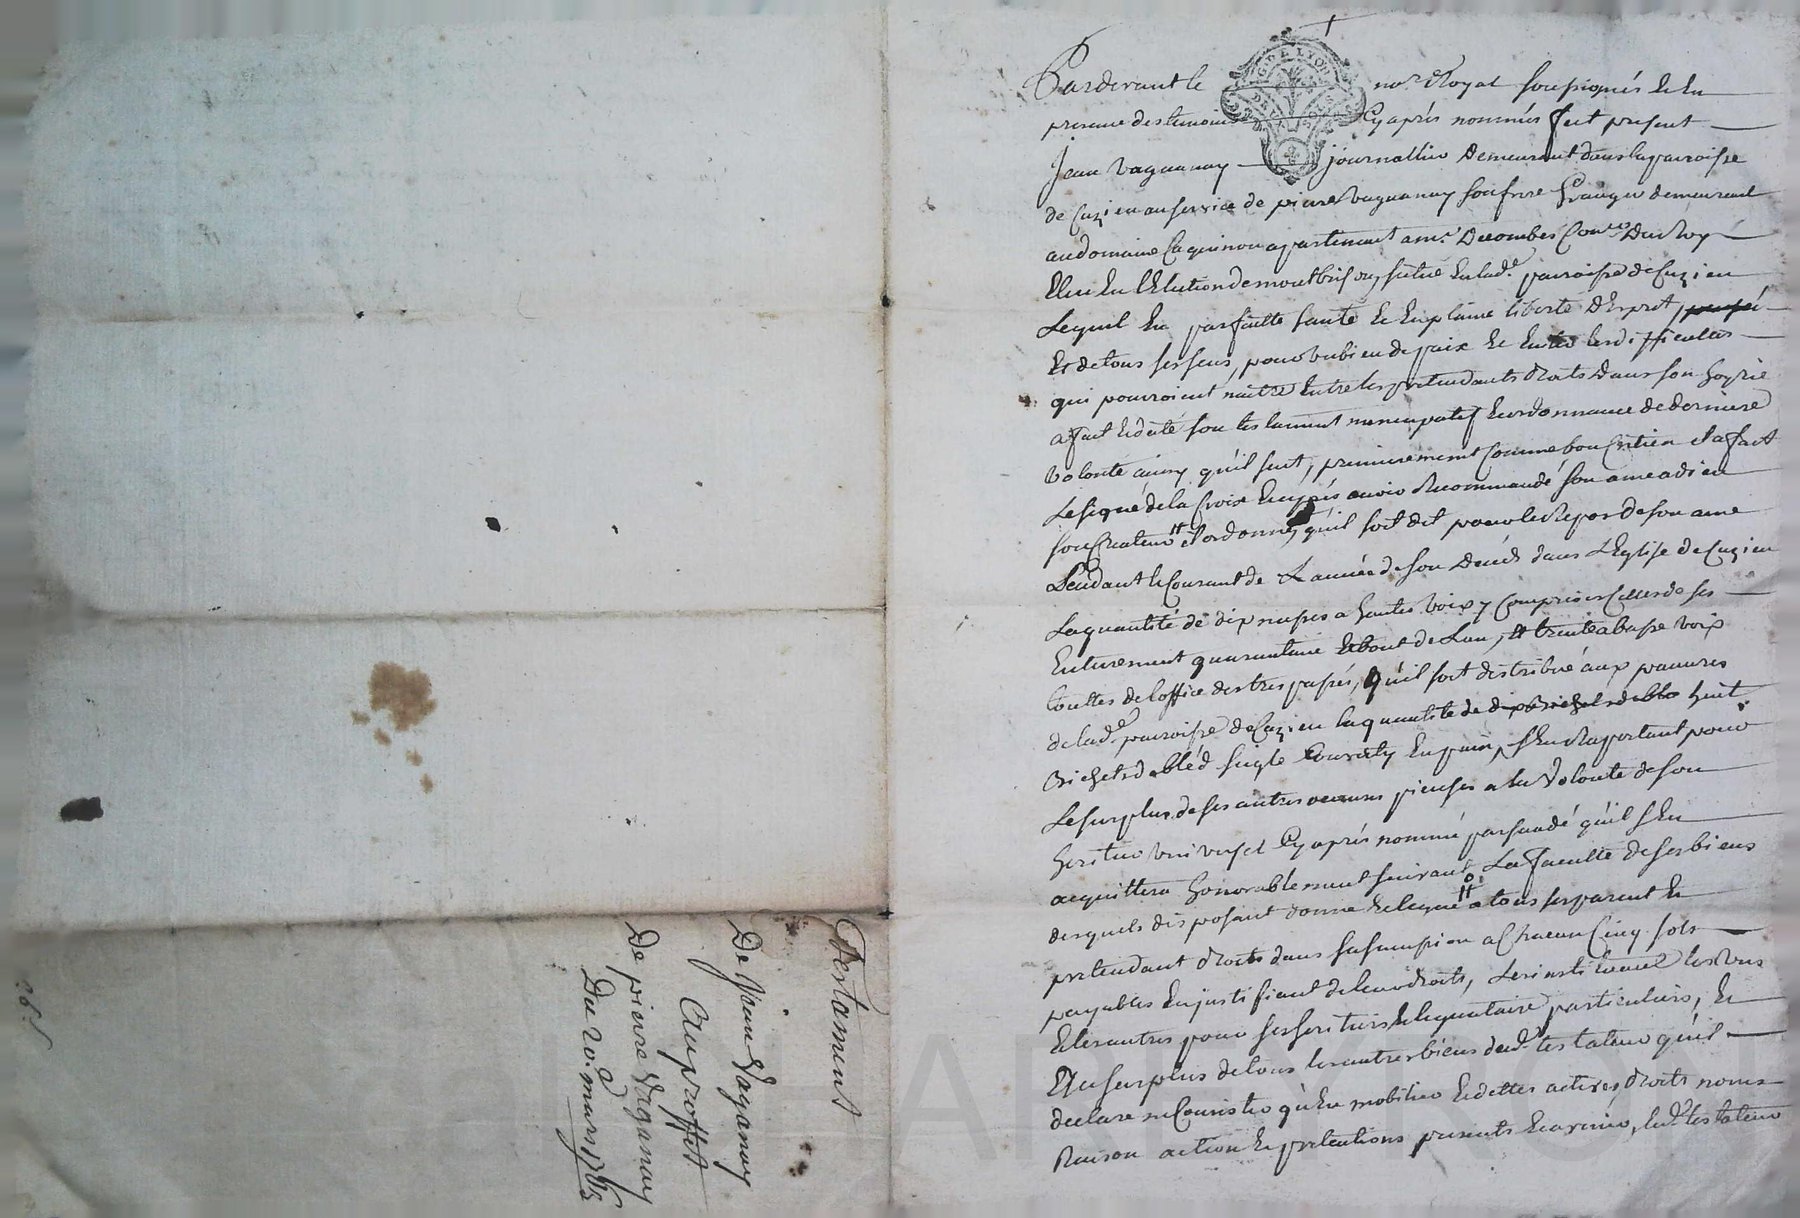 Testament
De Jean Vaganay
au proffit
De pierre Vaganay
Du 20e mars 1765
G. DE LYON
Pardevant le no.re Royal soussignés et en
presence des temoins Cy aprés nommés fut present
Jean Vaganay journallier demeurant dans la parroisse
de Cuzieu au service de pierre Vaganay son frere Granger demeurant
au domaine apartenant a m.r Decombes Con.er Du Roy
Eleu En l'Election de montbrison, situé en lad.e parroisse de Cuzieu
Lequel En parfaitte santé et En plaine liberté d'Esprit,
Et de tous ses sens, pour bien de paix et Eviter les difficultés
qui pourroient naitre Entre les pretendants droits dans son hoyrie
a fait et dicté son testament nuncupatif et ordonnance de derniere
Volonté ainsy qu'il suit, premierement Comme bon Crétien il a fait
Le signe de la Croix et aprés avoir Recommandé son ame a dieu
son Createur il ordonne, qu'il soit dit pour le Repos de son ame
Pendant le Courant de L'année de son décés dans L'Eglise de Cuzieu
La quantité de dix messes a hautes Voix y Comprises Celles de ses
Enterrement quarantaine et bout de L'an, et trente a basse Voix
touttes de l'office des trespassés, qu'il soit distribué aux pauvres
de lad.e parroisse de Cuzieu la quantité de huit
Bichets de bléd seigle Converty En pain, s'En Raportant pour
Le surplus de ses autres oeuvres pieuses a la Volonté de son
heritier universel Cy aprés nommé persuadé qu'il s'En
acquittera honnorablement suivant La faculté de ses biens
desquels disposant donne et legue a tous ses parent et
pretendant droits dans sa succession a Chacun Cinq sols
payables En justifiant de leur droits, Les instituant les uns
et les autres pour ses heritiers et legataire particuliers, Et
Au surplus de tous les autres biens dud.t testateur qu'il
declare ne Consister qu'En mobilier et dettes actives, droits noms
Raison action et pretentions presents et avenir, led.t testateur